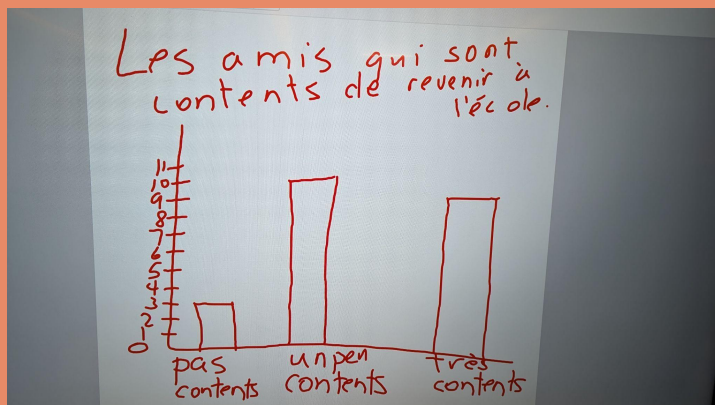 Les amis qui sont
contents de revenir à
l'école.
11
10
9
8
7
6
5
4
3
2
1
0
pas
contents
un peu
contents
très
contents